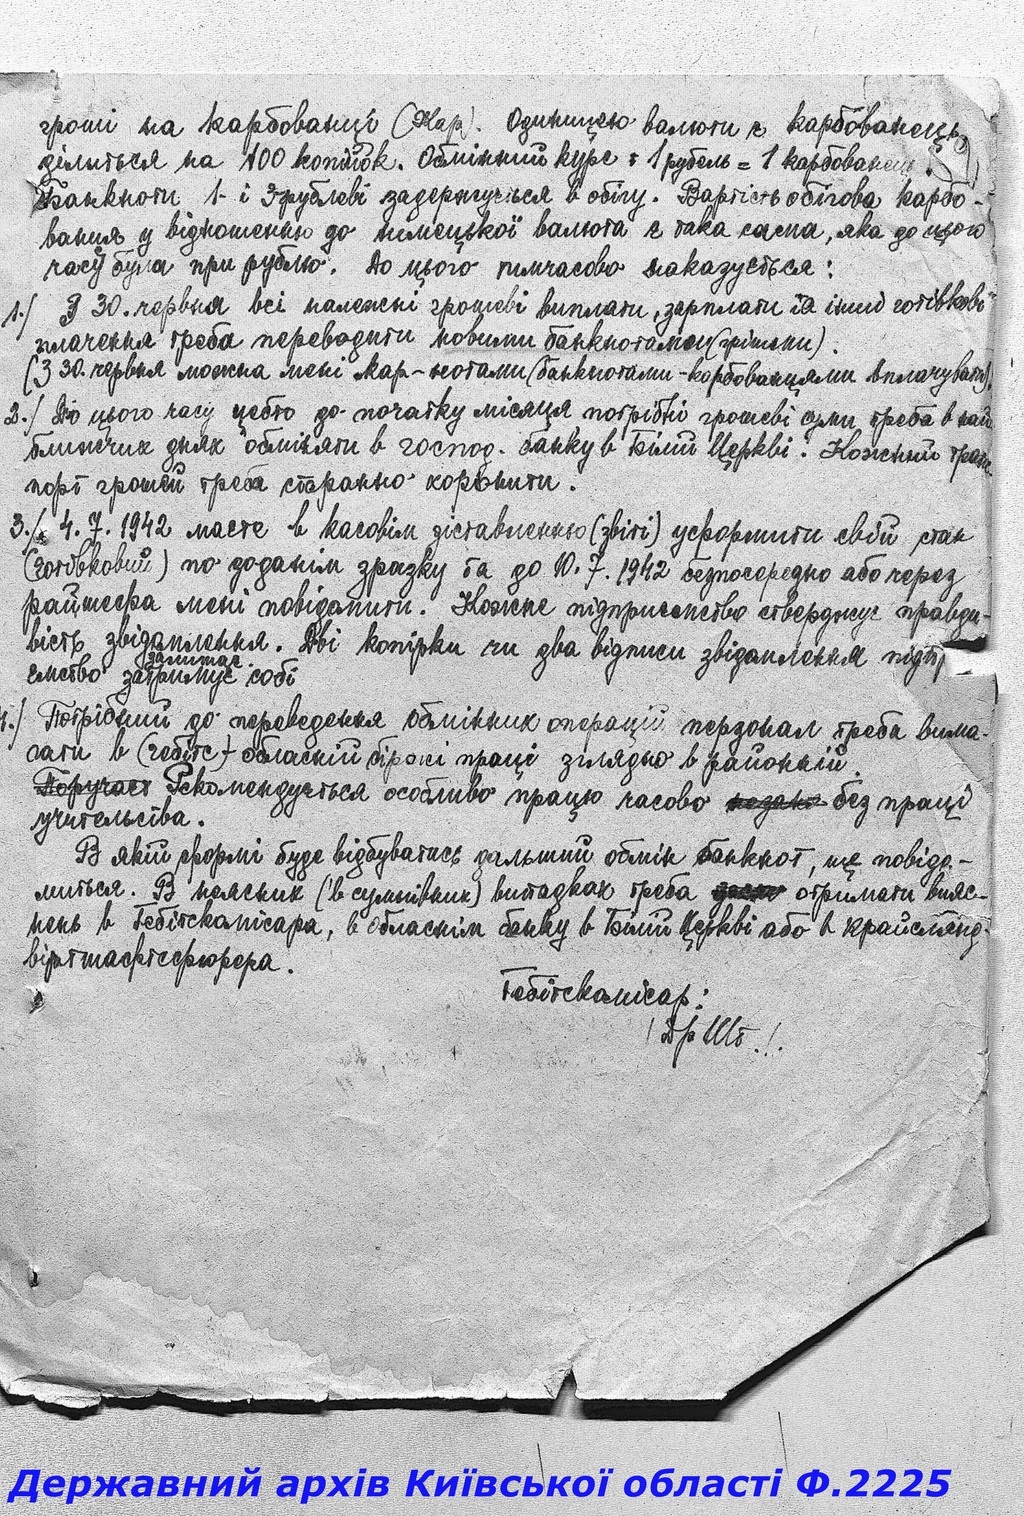 гроші на карбованці (Кар). Одиницею валюти є карбованець,
ділиться на 100 копійок. Обмінний курс : 1 рубель = 1 карбованець.
Банкноти 1- і 3рублеві задержується в обігу. Вартість обігова карбо-
ванця у відношенню до німецької валюта є така сама, яка до цього
часу була при рублю. До цього тимчасово наказується:
1./ З 30. червня всі належні грошеві виплати, зарплати та інші готівкові
плачення треба переводити новими банкнотами (грішми).
(З 30. червня можна мені кар-нотами (банкнотами-карбованцями вплачувати).
2./ До цього часу цебто до початку місяця потрібні грошеві суми треба в най
ближчих днях обміняти в господ. банку в Білій Церкві. Кожний транс
порт грошей треба старанно хоронити.
3./ 4.7.1942 маєте в касовім зіставленню (звіті) усформити свій стан
(готівковий) по доданім зразку та до 10.7.1942 безпосередно або через
райшефа мені повідомити. Кожне підприємство стверджує правди-
вість звідомлення. Дві копірки чи два відписи звідомлення підпр
залишає
ємство затримує собі
4./ Потрібний до переведення обмінних операцій перзонал треба вима-
гати в (гебітс-) обласній біржі праці зглядно в районній.
Поручаєт Рекомендується особливо працю часово без праці
учительства.
В якій формі буде відбуватись дальший обмін банкнот, ще повідо-
миться. В неясних (в сумнівних) випадках треба отримати вияс-
нень в Гебітскомісара, в Обласнім банку в Білій Церкві або в крайслянд-
віртшафтсфюрера.
Гебітскомісар:
/Др Шт./.
Державний архів Київської області Ф.2225